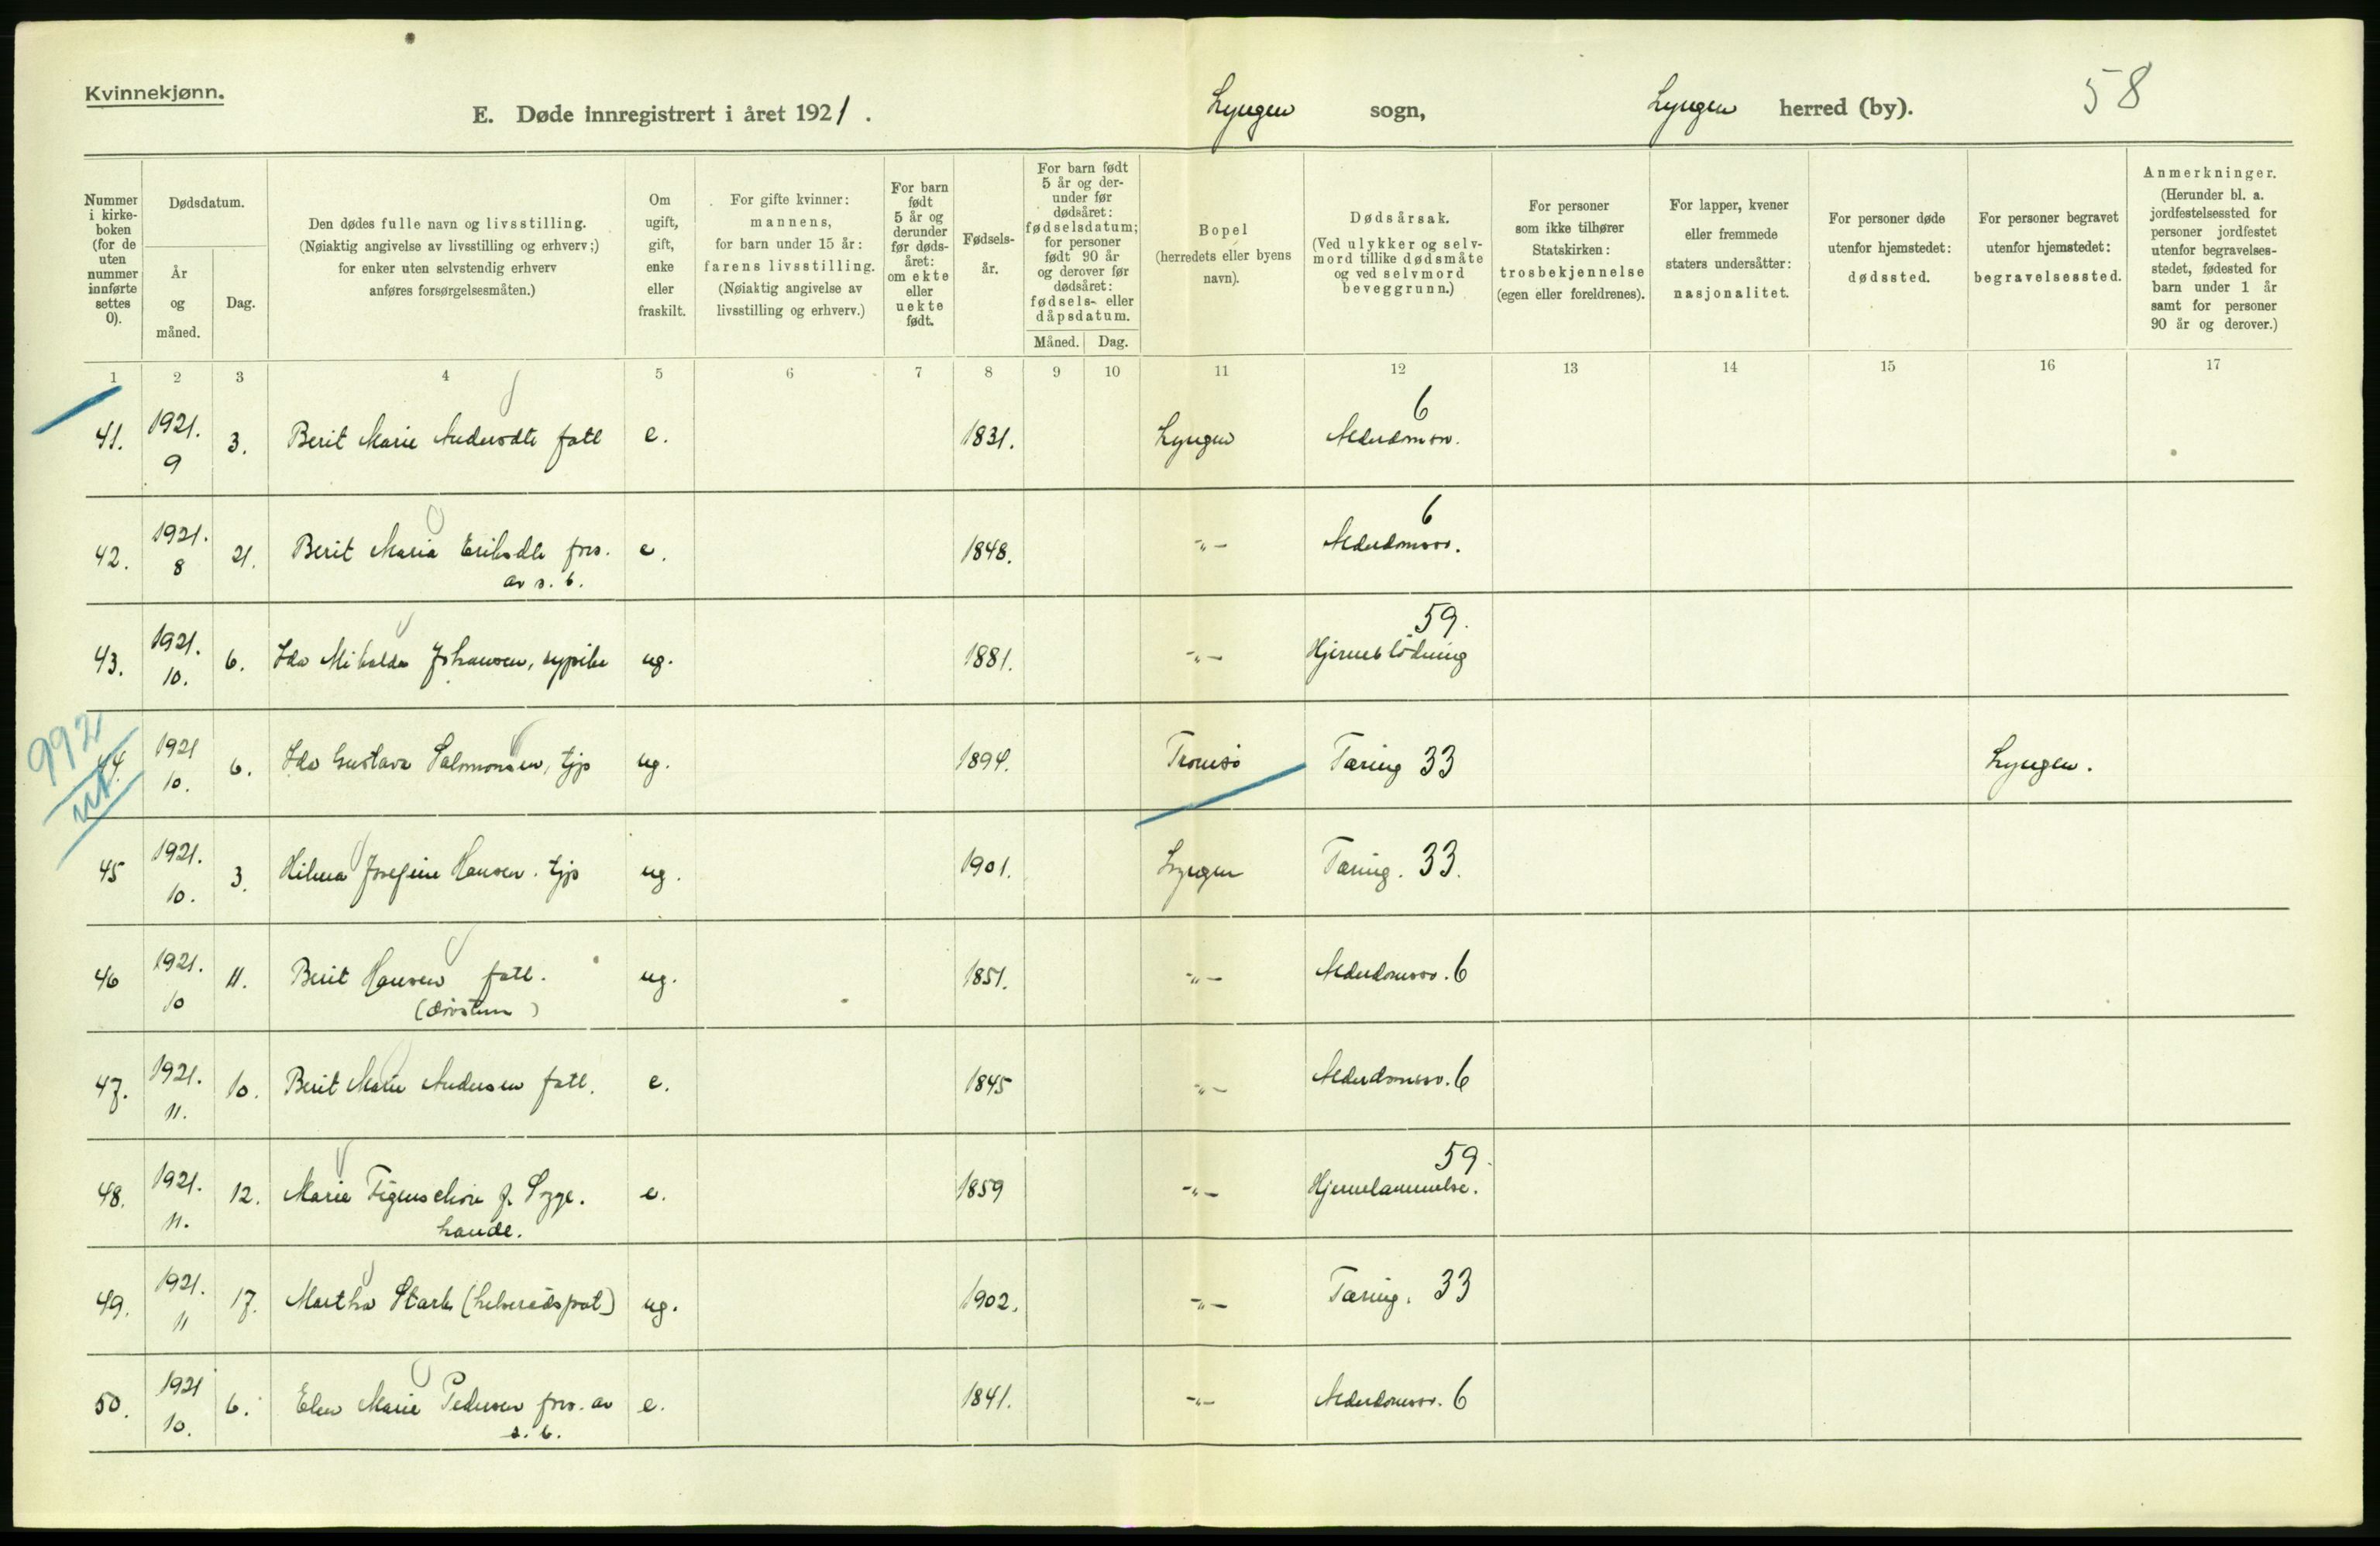 Kvinnekjønn.
E. Døde innregistrert i året 1921.
Lyngen sogn, Lyngen herred (by). 58
Nummer i kirkeboken (for de uten nummer innførte settes 0).
Dødsdatum.
År og måned.
Dag.
Den dødes fulle navn og livsstilling.
(Nøiaktig angivelse av livsstilling og erhverv;)
for enker uten selvstendig erhverv
anføres forsørgelsesmåten.)
Om ugift, gift, enke eller fraskilt.
For gifte kvinner: mannens,
for barn under 15 år:
farens livsstilling.
(Nøiaktig angivelse av
livsstilling og erhverv.)
For barn født 5 år og derunder før dødsåret: om ekte eller uekte født.
Fødselsår.
For barn født 5 år og derunder før dødsåret: fødselsdatum; for personer født 90 år og derover før dødsåret: fødsels- eller dåpsdatum.
Måned. Dag.
Bopel
(herredets eller byens
navn).
Dødsårsak.
(Ved ulykker og selvmord tillike dødsmåte og ved selvmord beveggrunn.)
For personer
som ikke tilhører
Statskirken:
trosbekjennelse
(egen eller foreldrenes).
For lapper, kvener
eller fremmede
staters undersåtter:
nasjonalitet.
For personer døde
utenfor hjemstedet:
dødssted.
For personer begravet
utenfor hjemstedet:
begravelsessted.
Anmerkninger.
(Herunder bl. a.
jordfestelsessted for
personer jordfestet
utenfor begravelses-
stedet, fødested for
barn under 1 år
samt for personer
90 år og derover.)
1 2 3 4 5 6 7 8 9 10 11 12 13 14 15 16 17
41. 1921. 9 3. Berit Marie Andersdtr fatt e. 1831. Lyngen Alderdomssv. 6
42. 1921. 8 21. Berit Maria Eriksdtr fors. av s. b. e. 1848. -"- Alderdomssv. 6
43. 1921. 10. 6. Ida Mikalda Johansen, sypike ug. 1881. -"- Hjerneblödning 59.
992
ut
44. 1921 10. 6. Ida Gustava Salomonsen, tjp ug. 1894. Tromsö Tæring 33 Lyngen.
45 1921. 10. 3. Hilma Josefine Hansen. tjp ug. 1901. Lyngen Tæring. 33.
46 1921. 10 11. Berit Hansen fatt. ug. 1851. -"- Alderdomssv. 6
47. 1921. 11. 10. Berit Marie Andersen fatt. e. 1845 -"- Alderdomssv. 6
48. 1921. 11. 12. Maria Figenschou f. Lyge. handl. e. 1859 -"- Hjernelammelse. 59.
49. 1921. 11 17. Martha Stark ug. 1902. -"- Tæring. 33
50. 1921 10. 6. Elen Marie Pedersen fors. av s. b. e. 1841. -"- Alderdomssv. 6